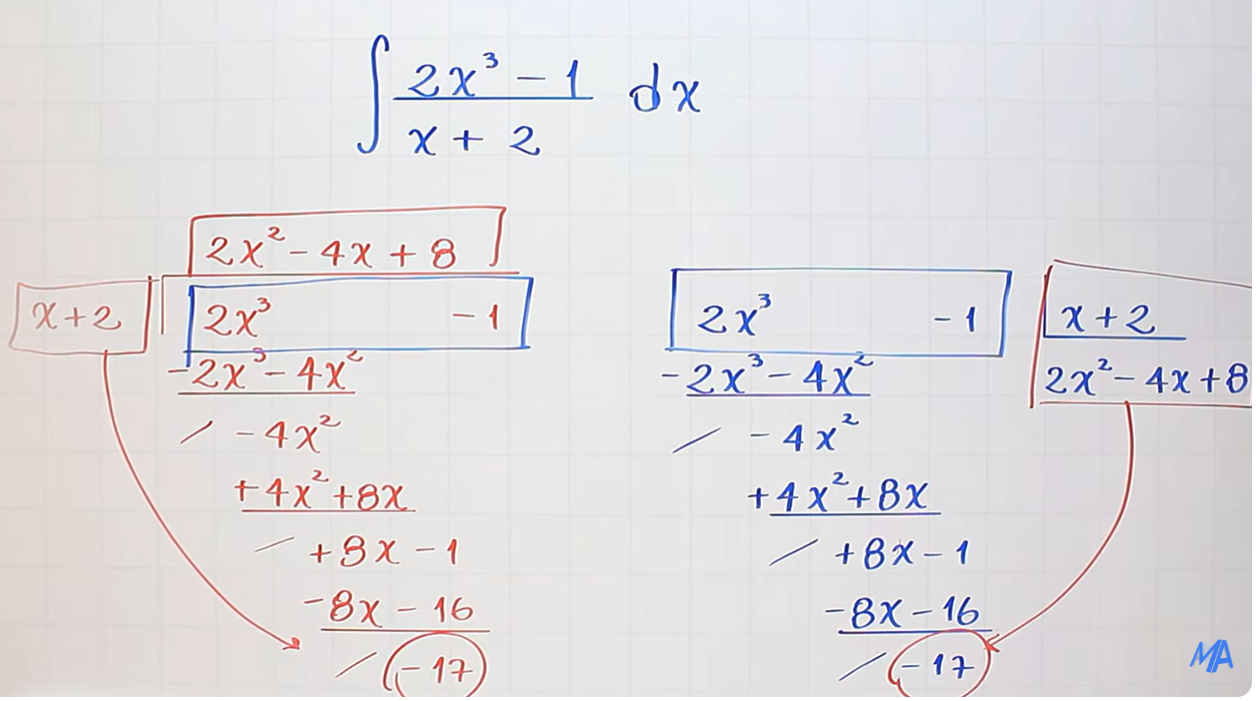 ∫ (2x³ − 1)/(x + 2) dx
2x² − 4x + 8
x + 2
2x³ − 1
−2x³ − 4x²
− 4x²
+4x² + 8x
+8x − 1
−8x − 16
−17
2x³ − 1
x + 2
−2x³ − 4x²
2x² − 4x + 8
− 4x²
+4x² + 8x
+8x − 1
−8x − 16
−17
MA